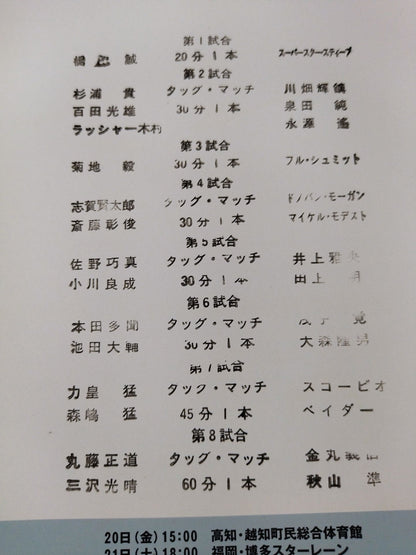 第1試合
橋 誠 20分1本 スーパースタースティーブ
第2試合
杉浦 貴 タッグ・マッチ 川畑輝鎮
百田光雄 30分1本 泉田 純
ラッシャー木村 永源 遙
第3試合
菊地 毅 30分1本 フル・シュミット
第4試合
志賀賢太郎 タッグ・マッチ ドノバン・モーガン
斎藤彰俊 30分1本 マイケル・モデスト
第5試合
佐野巧真 タッグ・マッチ 井上雅央
小川良成 30分1本 田上
第6試合
本田多聞 タッグ・マッチ 覚
池田大輔 30分1本 大森隆男
第7試合
力皇 猛 タッグ・マッチ スコーピオ
森嶋 猛 45分1本 ベイダー
第8試合
丸藤正道 タッグ・マッチ 金丸義信
三沢光晴 60分1本 秋山 準
20日(金)15:00 高知・越知町民総合体育館
21日(土)18:00 福岡・博多スターレーン